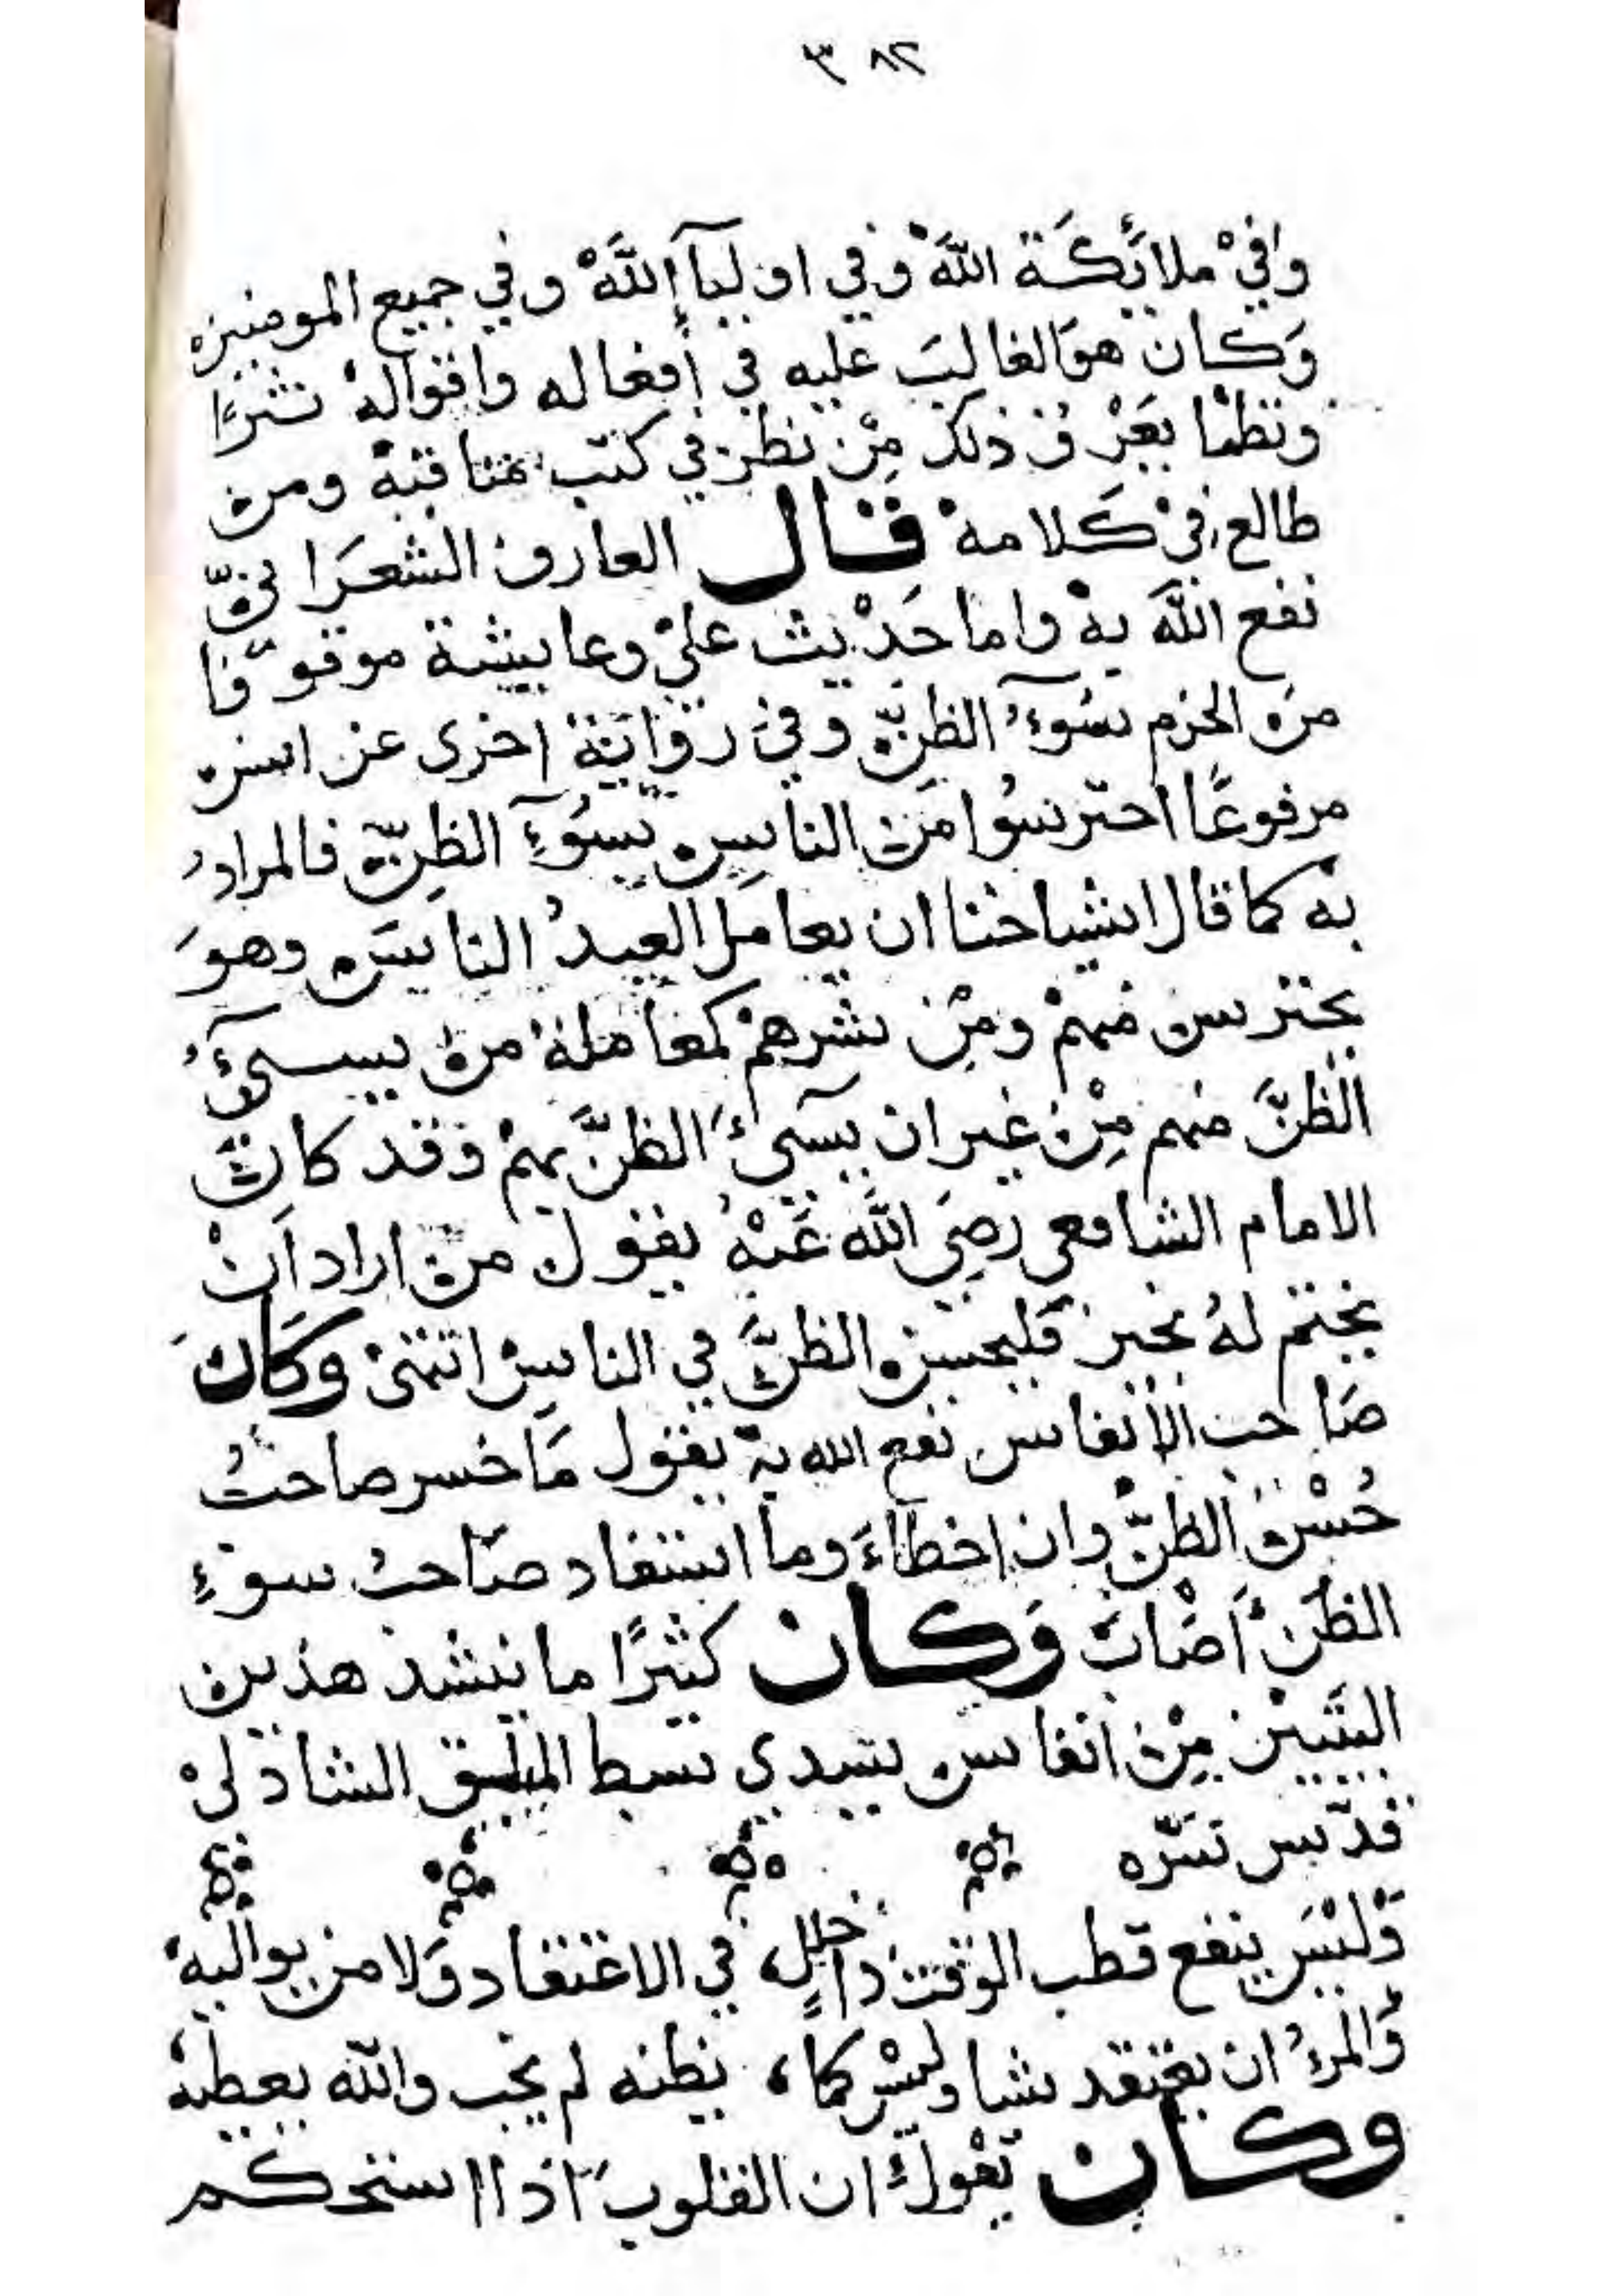 ٣٨٢
وافي ملائكة الله وفي اوليآإلله وفي جميع المومنين
وكان هو الغالب عليه في أفعاله واقواله نثرًا
ونظما يعرف ذلك من نظر في كتب مناقبه ومن
طالع في كلامه قال العارف الشعراني
نفع الله به واما حديث علي وعايشة موقوفا
من الحزم سوء الظن وفي رواية اخرى عن انس
مرفوعًا احترسوا من الناس بسوء الظن فالمراد
به كما قال اشياخنا ان يعامل العبد الناس وهو
يحترس منهم ومن شرهم كمعاملة من يسيء
الظن منهم من غير ان يسيء الظن بهم وقد كان
الامام الشافعي رضي الله عنه يقول من اراد ان
يختم له بخير فليحسن الظن في الناس انتهى وكان
صاحب الأنفاس نفع الله به يقول ما خسر صاحب
حسن الظن وان اخطاء وما استفاد صاحب سوء
الظن اصاب وكان كثيرًا ما ينشد هذين
البيتين من انفاس سيدي الشاذلي
قدّس سرّه
وليس ينفع قطب الوقت ذا خلل، في الاعتقاد ولا من يواليه
والمرء ان يعتقد شيا وليس كما، يظنه لم يخب والله يعطيه
وكان يقول ان القلوب اذا استحكم